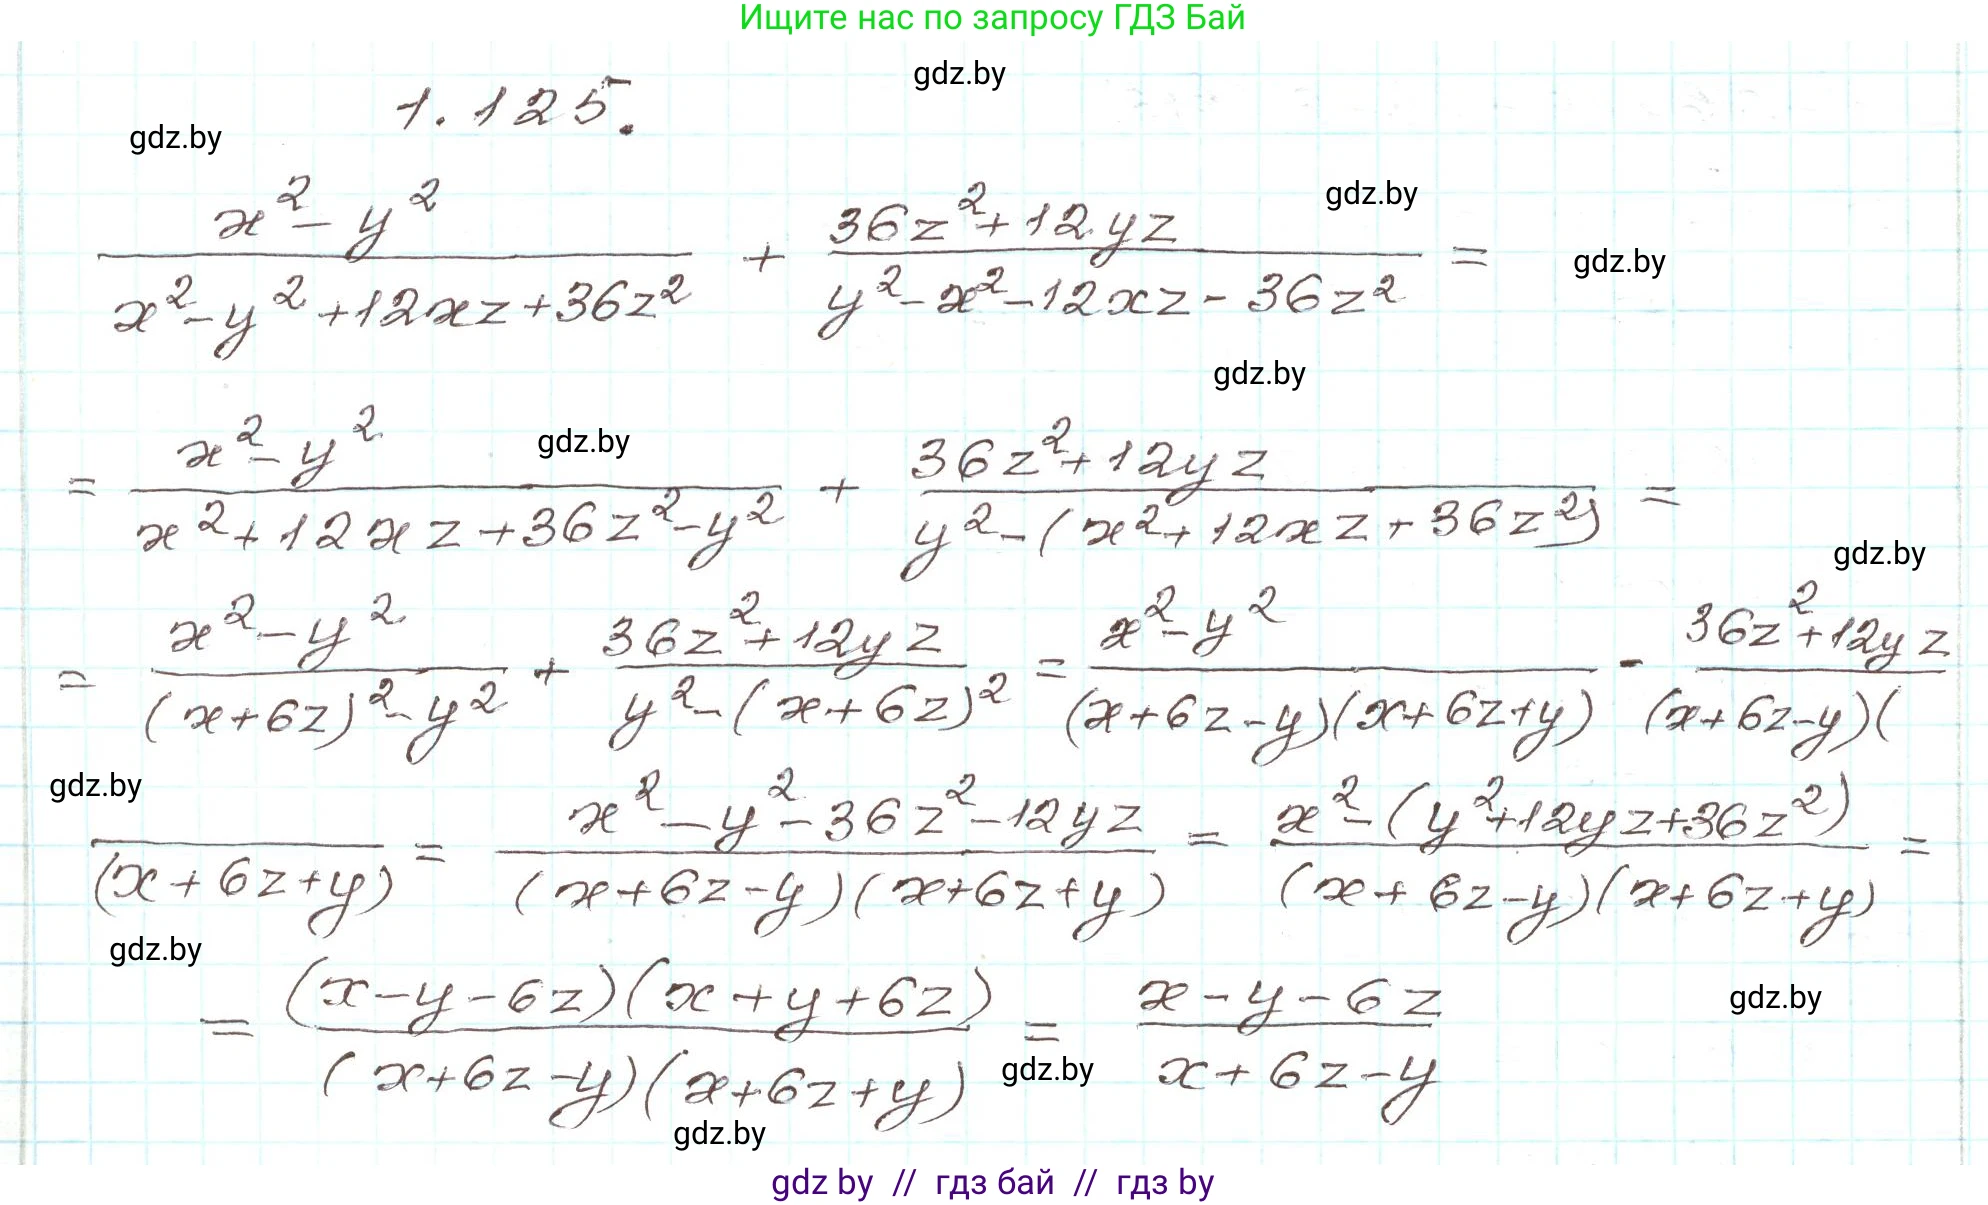 Ищите нас по запросу ГДЗ Бай
gdz.by
1.125.
gdz.by
gdz.by
x² - y² / x² - y² + 12xz + 36z² + 36z² + 12yz / y² - x² - 12xz - 36z² =
gdz.by
gdz.by
gdz.by
= x² - y² / x² + 12xz + 36z² - y² + 36z² + 12yz / y² - (x² + 12xz + 36z²) =
gdz.by
= x² - y² / (x + 6z)² - y² + 36z² + 12yz / y² - (x + 6z)² = x² - y² / (x + 6z - y)(x + 6z + y) - 36z² + 12yz / (x + 6z - y)(
gdz.by
/ (x + 6z + y) = x² - y² - 36z² - 12yz / (x + 6z - y)(x + 6z + y) = x² - (y² + 12yz + 36z²) / (x + 6z - y)(x + 6z + y) =
gdz.by
= (x - y - 6z)(x + y + 6z) / (x + 6z - y)(x + 6z + y) = x - y - 6z / x + 6z - y
gdz.by
gdz.by
gdz.by
gdz by // гдз бай // гдз by